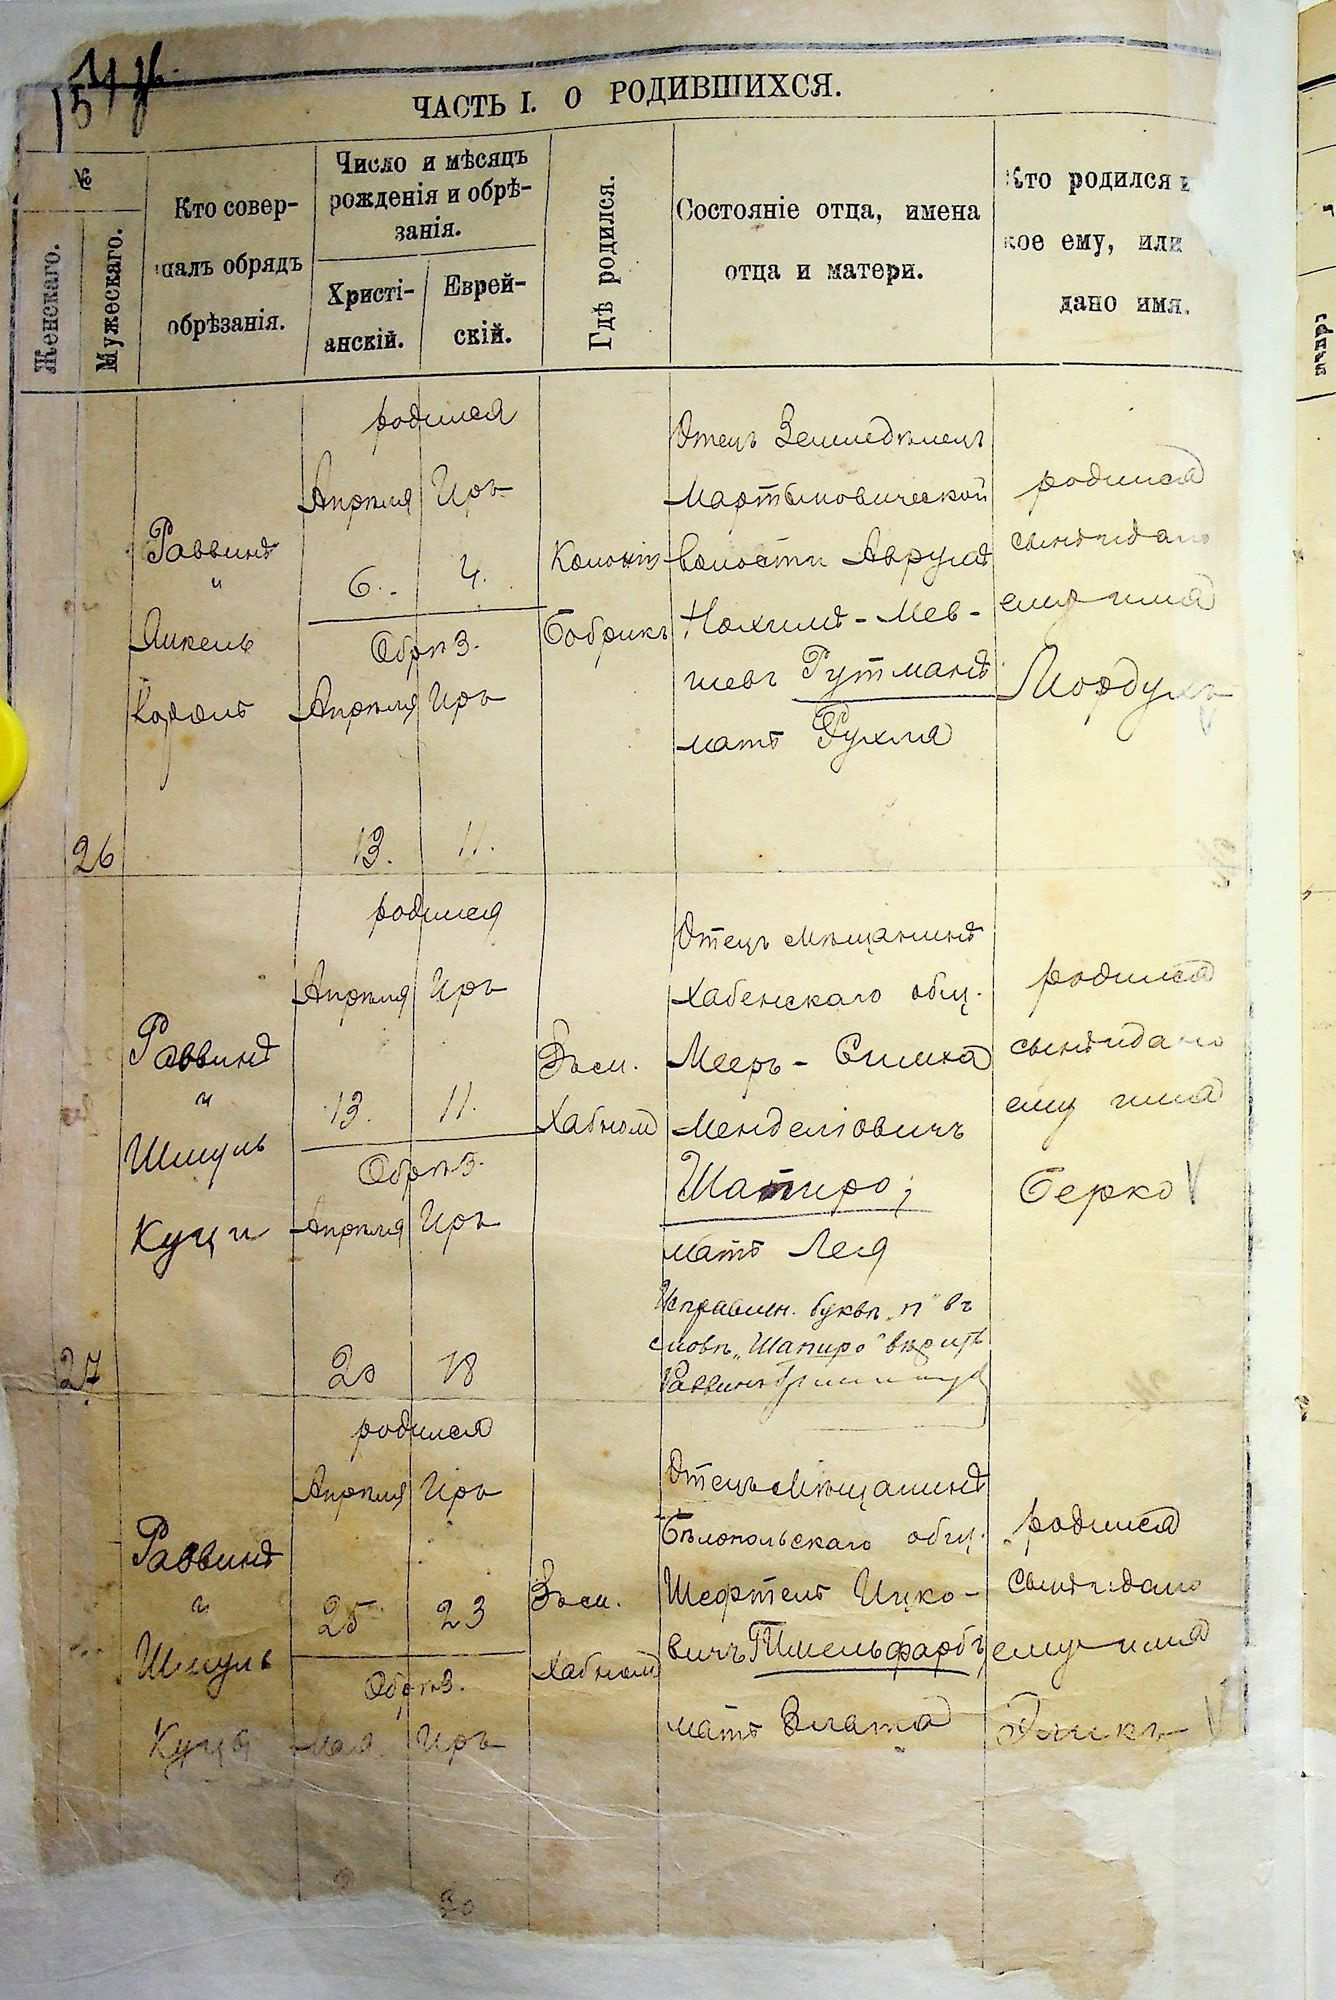 ЧАСТЬ I. О РОДИВШИХСЯ.
№
Женскаго.
Мужескаго.
Кто совер-
шалъ обрядъ
обрѣзанія.
Число и мѣсяцъ
рожденія и обрѣ-
занія.
Христі-
анскій.
Еврей-
скій.
Гдѣ родился.
Состояніе отца, имена
отца и матери.
Кто родился и
кое ему, или
дано имя.
26
Раввинъ
и
Янкель
родился
Апрѣля Иръ
6. 4.
Обрѣз.
Апрѣля Иръ
13. 11.
Бобрикъ
Отецъ Земледѣлецъ
Мартыновической
волости Аврумъ
Нохимъ-Мев-
шевъ Гутманъ
мать Рухля
родился
сынъ и дано
ему имя
Мордухъ
27
Раввинъ
и
Шмуль
Куци
родился
Апрѣля Иръ
13. 11.
Обрѣз.
Апрѣля Иръ
20 18
Въ м.
Хабномъ
Отецъ мѣщанинъ
Хабенскаго общ.
Мееръ-Симха
Менделіовичъ
Шапиро;
мать Лея
Исправлен. буквѣ "п" въ
словѣ "Шапиро" вѣрить
Раввинъ
родился
сынъ и дано
ему имя
Берко
Раввинъ
и
Шмуль
Куци
родился
Апрѣля Иръ
25 23
Обрѣз.
Мая Иръ
30
Въ м.
Хабномъ
Отецъ мѣщанинъ
Бѣлопольскаго общ.
Шефтель Ицко-
вичъ Гимельфарбъ
мать Злата
родился
сынъ и дано
ему имя